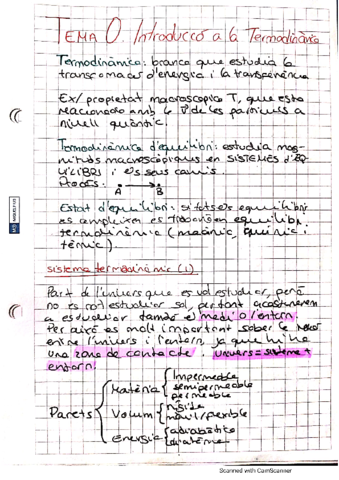 TEMA 0. Introducció a la Termodinàmica
Termodinàmica: branca que estudia la
d'energia i la transferència
Ex/ propietat macroscopica T, que esta
relacionada amb la de les partícules a
nivell quàntic.
Termodinàmica d'equilibri: estudia mag-
nituds macroscòpiques en SISTEMES D'EQ-
UILIBRI i els seus canvis
A → B
Estat d'equilibri: si tots els equilibris
es compleixen es troba en equilibri
termodinàmic (mecànic, químic i
tèrmic).
sistema termodinàmic (1)
Part de l'univers que es vol estudiar, però
no es pot estudiar sol, pertant acostumarem
a estudiar també el medi o l'entorn.
Per això es molt important saber la
entre l'univers i l'entorn, ja que hi ha
una zona de contacte. univers = sistema +
entorn.
Parets
Matèria
Impermeable
semipermeable
permeable
Volum
rígida
mòvil/flexible
energia
adiabàtica
diatèrma
Scanned with CamScanner